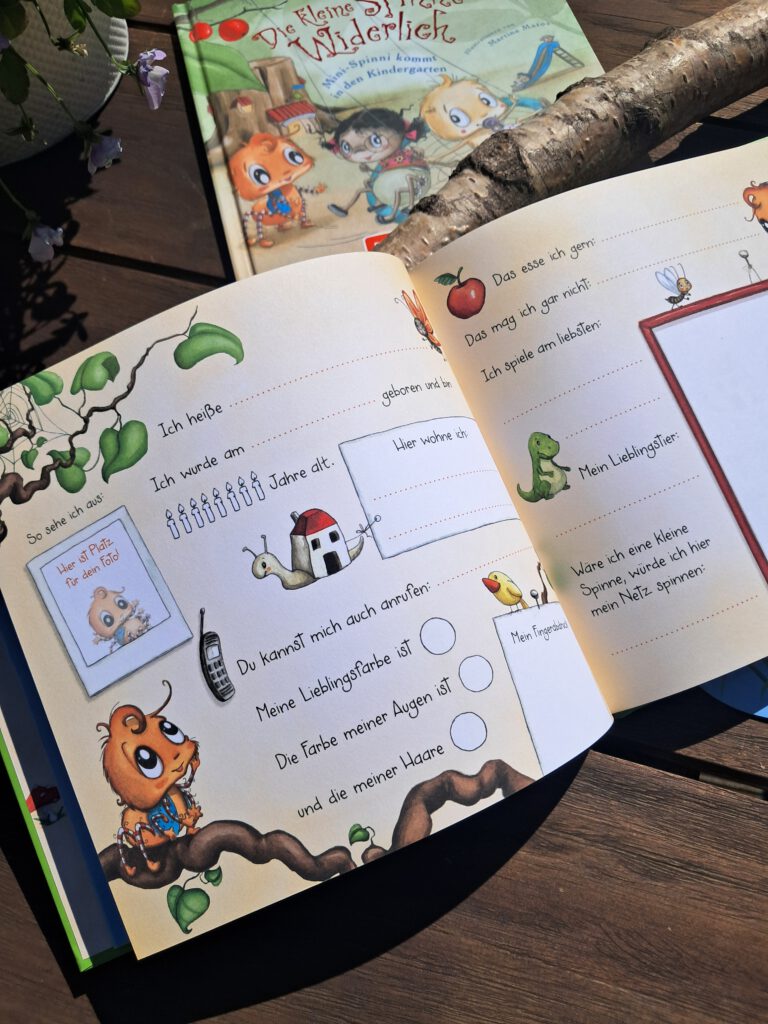 Die kleine Spinne
Widerlich
Mini-Spinni kommt
in den Kindergarten
Illustrationen von
Martina Matos
Ich heiße
Ich wurde am geboren und bin
Jahre alt.
Hier wohne ich:
So sehe ich aus:
Hier ist Platz
für dein Foto!
Du kannst mich auch anrufen:
Meine Lieblingsfarbe ist
Die Farbe meiner Augen ist
und die meiner Haare
Mein
Das esse ich gern:
Das mag ich gar nicht:
Ich spiele am liebsten:
Mein Lieblingstier:
Wäre ich eine kleine
Spinne, würde ich hier
mein Netz spinnen: